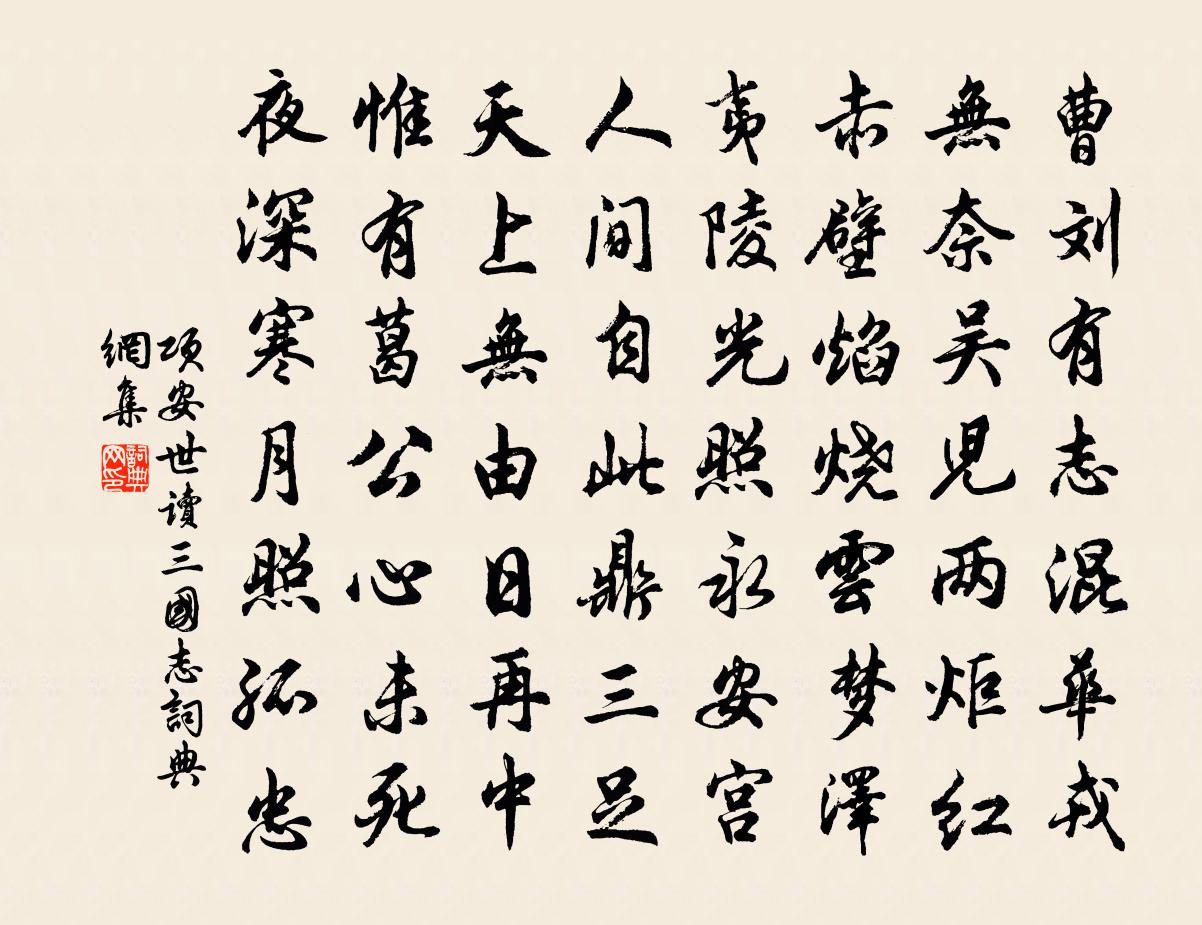 曹刘有志混華戎
無奈吴児两炬红
赤壁焰烧雲梦澤
夷陵光照永安宫
人间自此鼎三足
天上無由日再中
惟有葛公心未死
夜深寒月照孤忠
项安世读三國志詞典
網集
詞典
网印